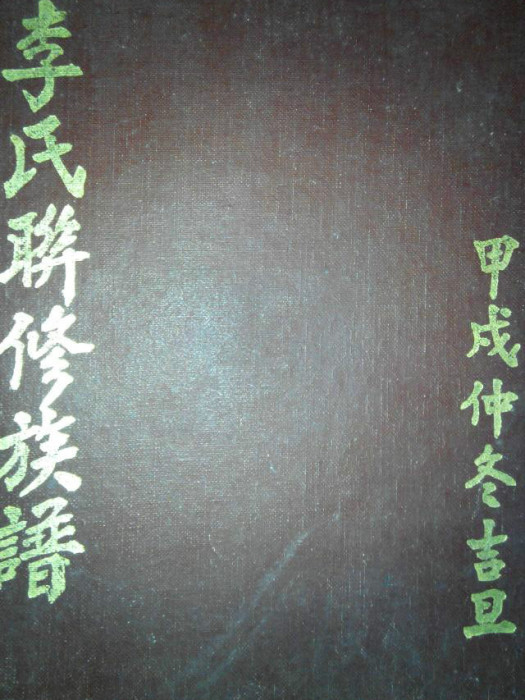 甲戌仲冬吉旦
李氏聯修族譜